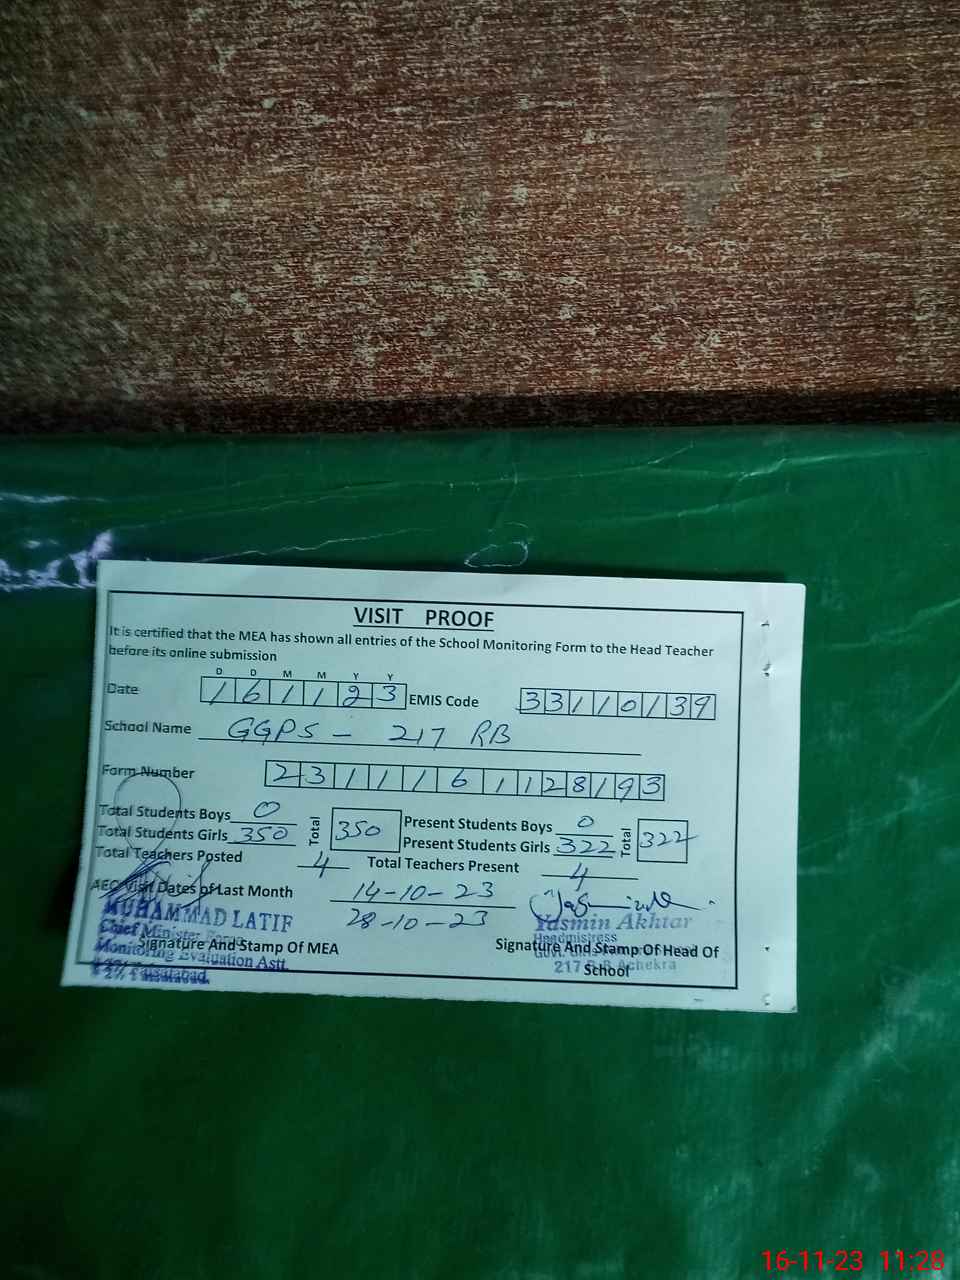 VISIT PROOF
It is certified that the MEA has shown all entries of the School Monitoring Form to the Head Teacher
before its online submission
D D M M Y Y
Date 1 6 1 1 2 3 EMIS Code 3 3 1 1 0 1 3 9
School Name GGPS - 217 RB
Form Number 2 3 1 1 1 6 1 1 2 8 1 9 3
Total Students Boys 0 Total 350 Present Students Boys 0 Total 322
Total Students Girls 350 Present Students Girls 322
Total Teachers Posted 4 Total Teachers Present 4
AEO Visit Dates of Last Month 14-10-23
28-10-23
MUHAMMAD LATIF
Chief Minister
Monitoring Evaluation Astt.
Faisalabad.
Signature And Stamp Of MEA
Yasmin Akhtar
Headmistress
217 R.B Achekra
Signature And Stamp Of Head Of
School
16-11-23 11:28